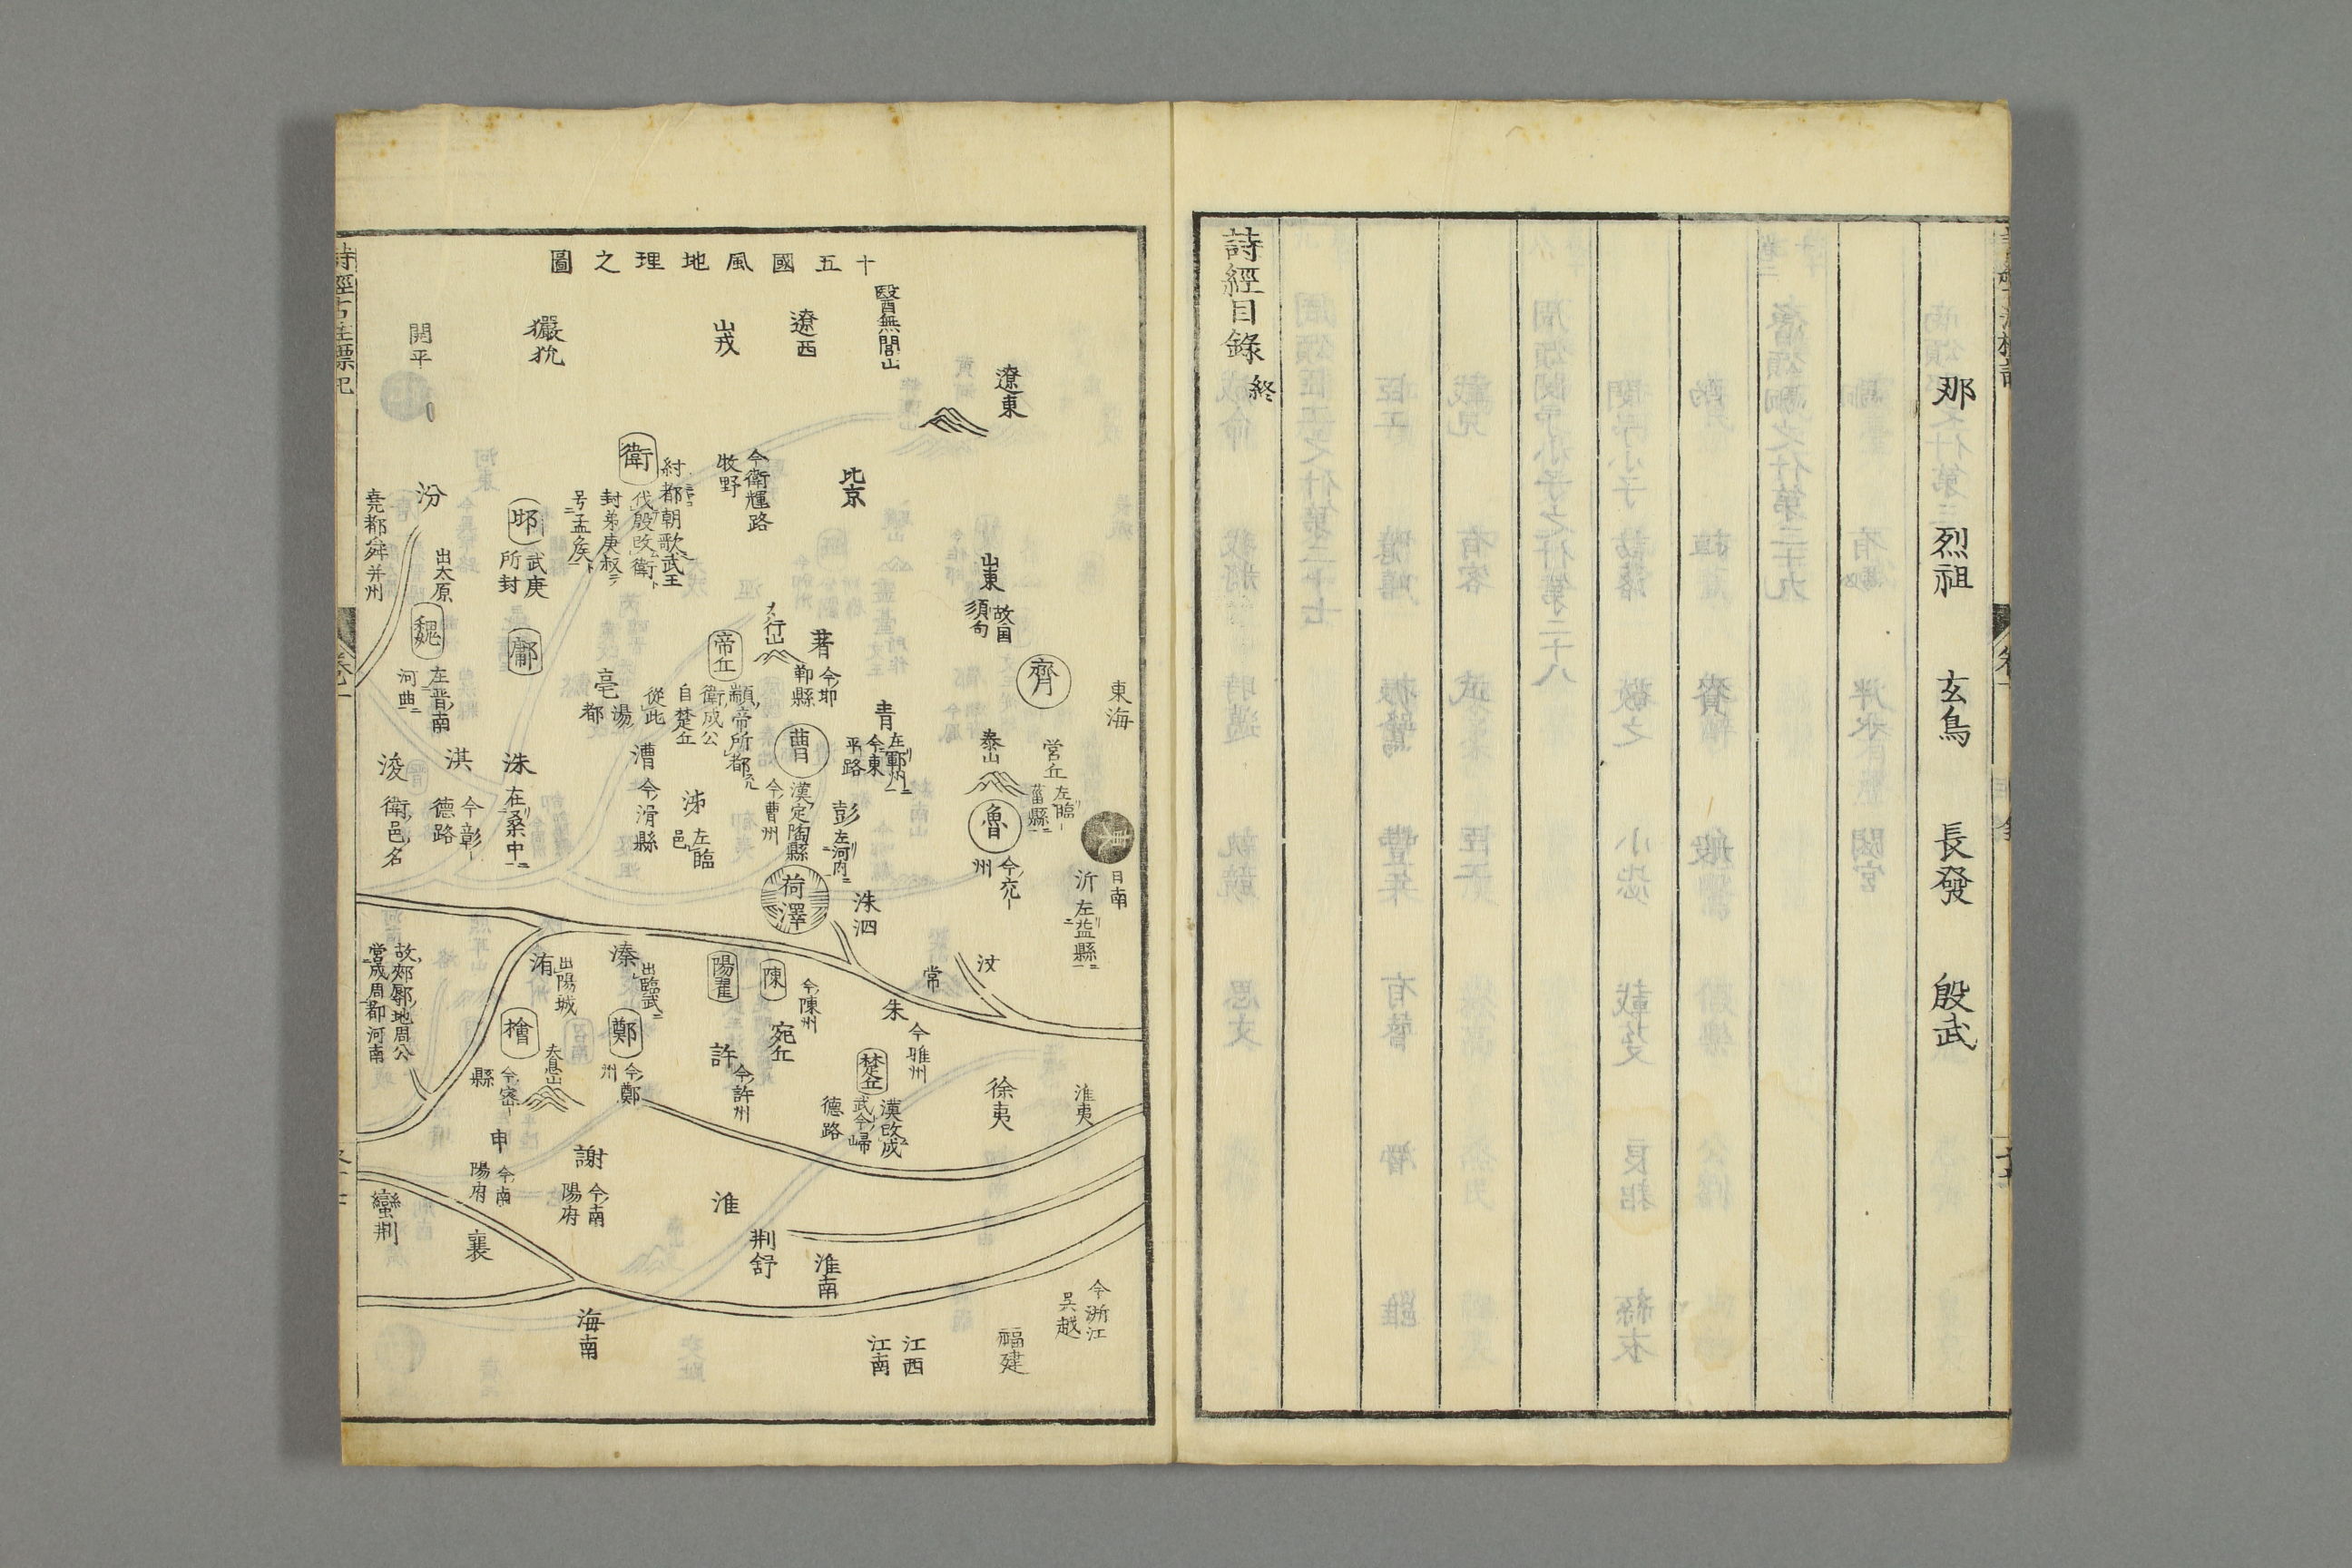 那　烈祖　玄鳥　長發　殷武
詩經目錄終
十五國風地理之圖
醫無閭山
遼西
山戎
玁狁
開平
遼東
北京
今衛輝路
牧野
衛
紂都朝歌武王
伐殷改衛
封弟庚叔
号孟矦
邶
武庚
所封
汾
出太原
堯都舜并州
山東
故国
須句
齊
東海
著
今耶
鄆縣
大行山
帝丘
顓帝所都
衛成公
自楚丘
從此
亳
湯
都
鄘
魏
左晋南
河曲
青
左鄆州
今東
平路
泰山
営丘
左臨
菑縣
曹
漢定陶縣
今曹州
漕
今滑縣
泲
左臨
邑
洙
在桑中
淇
今彰
德路
浚
衛邑名
彭
左河内
魯
今兗
州
東
日南
沂
左益縣
荷澤
洙泗
汶
常
朱
今雅州
陳
今陳州
宛丘
陽翟
溱
出臨武
洧
出陽城
故郟鄏地周公
営成周都河南
檜
今密
縣
大隗山
鄭
今鄭
州
許
今許州
楚丘
漢改成
武今歸
德路
徐夷
淮夷
申
今南
陽府
謝
今南
陽府
淮
荆舒
淮南
蠻荆
襄
海南
江西
江南
福建
今浙江
吴越
詩經古註標記